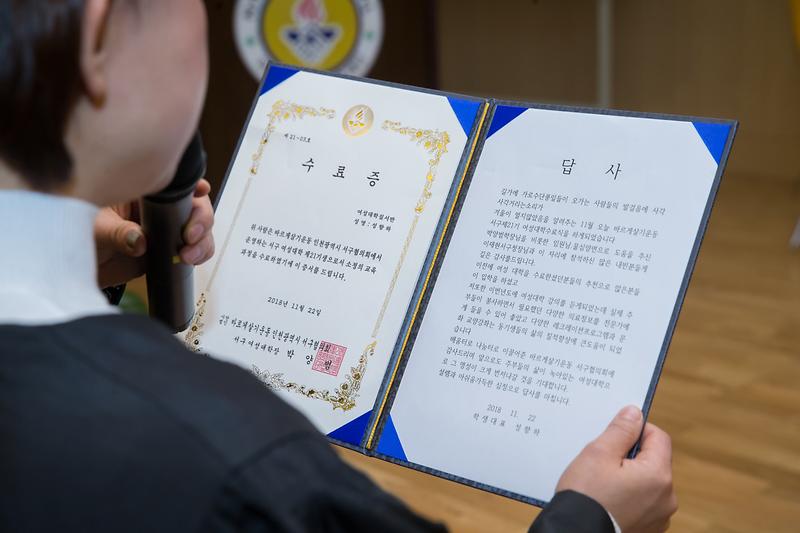 제 21-03호
수 료 증
여성대학실사반
성 명 : 성 향 하
위 사람은 바르게살기운동 인천광역시 서구협의회에서
운영하는 서구 여성대학 제21기생으로서 소정의 교육
과정을 수료하였기에 이 증서를 드립니다.
2018년 11월 22일
바르게살기운동 인천광역시 서구협의회
서구 여성대학장 박 양 범
답 사
길가에 가로수단풍잎들이 오가는 사람들의 발걸음에 사각
사각거리는소리가
겨울이 멀지않았음을 알려주는 11월 오늘 바르게살기운동
서구제21기 여성대학수료식을 하게되었습니다
박양범학장님을 비롯한 임원님,물심양면으로 도움을 주신
이재현시구청장님과 이 자리에 참석하신 많은 내빈분들께
깊은 감사를드립니다.
이전에 여성 대학을 수료한선던분들의 추천으로 많은분들
이 입학을 하셨고
저또한 이번년도에 여성대학 강의를 듣게되었는데 실제 주
부들이 봉사하면서 필요했던 다양한 의료정보를 전문가에
게 들을 수 있어 좋았고 다양한 레크레이션프로그램과 문
화 교양강좌는 동기생들의 삶의 질적향상에 큰도움이 되었
습니다
배움터로 나눔터로 이끌어준 바르게살기운동 서구협의회에
감사드리며 앞으로도 주부들의 삶이 녹아있는 여성대학으
로 그 명성이 크게 번져나갈 것을 기대합니다.
설렘과 아쉬움가득한 심정으로 답사를 마칩니다.
2018 11. 22
학생대표 성향하